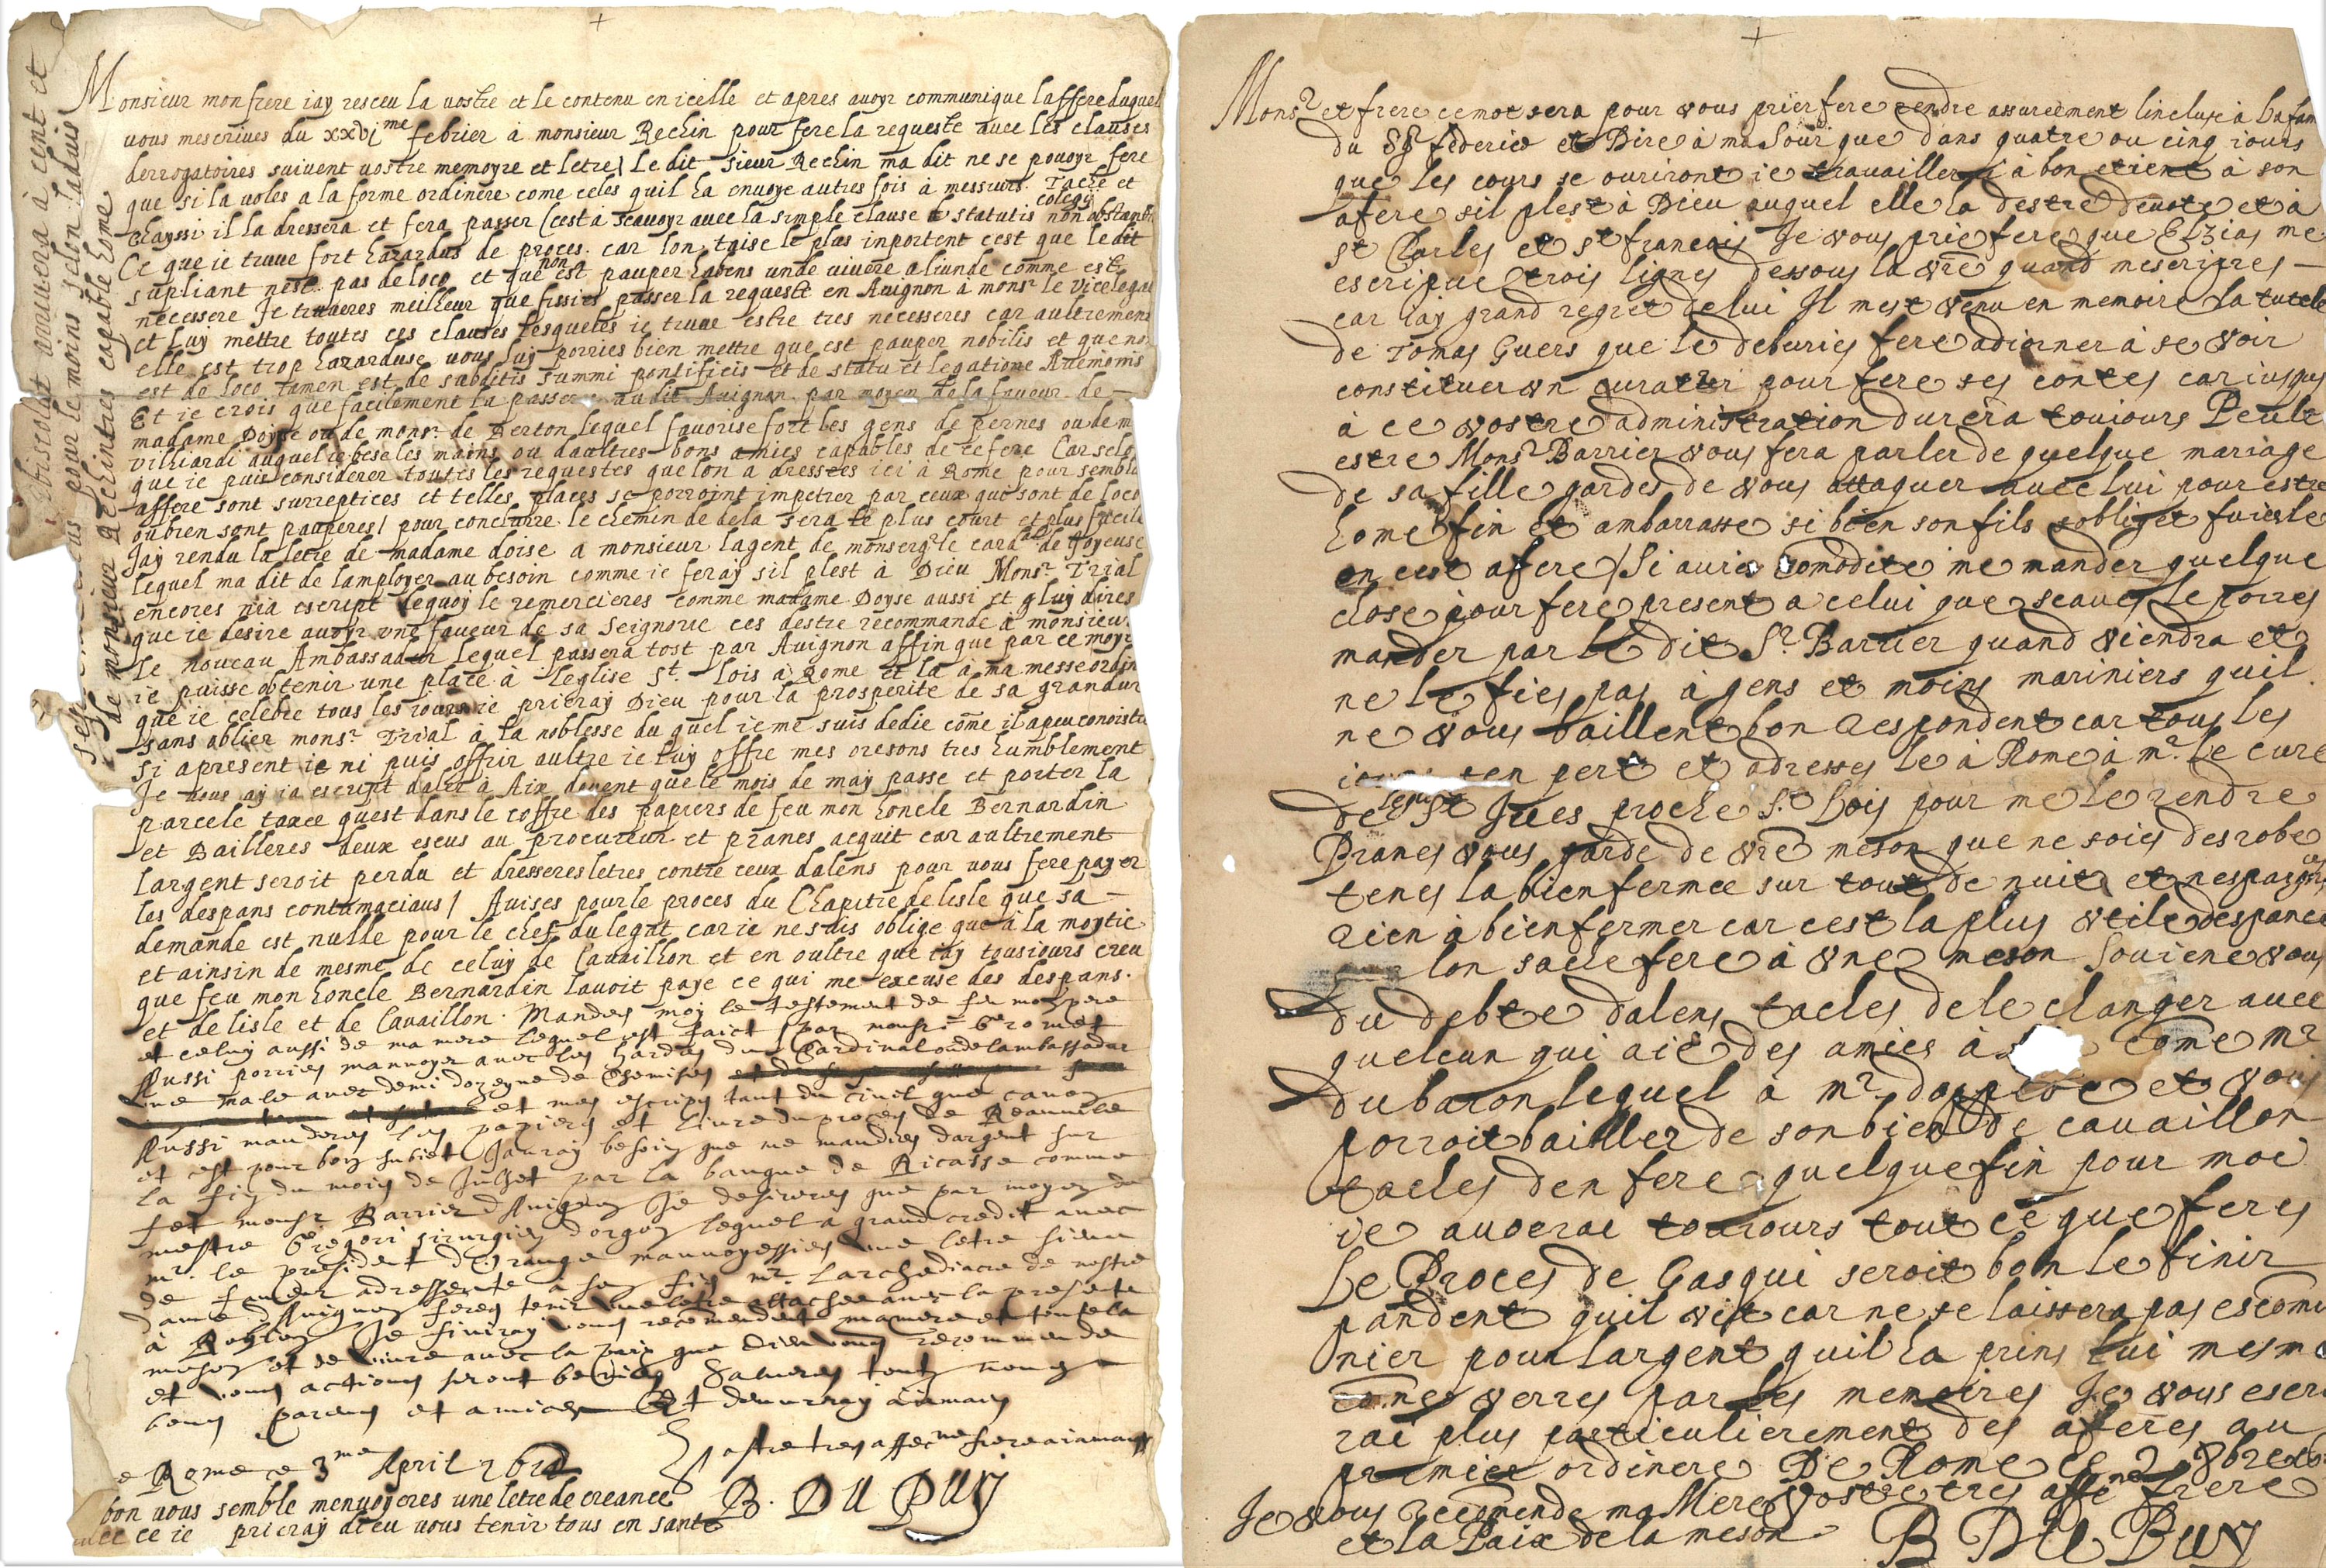 Monsieur mon frere iay resceu la vostre et le contenu en icelle et apres auoyr communique laffere duquel
vous mescriues du xxvi me febrier à monsieur Rechin pour fere la requeste auec les clauses
derrogatoires suiuent vostre memoyre et letre / Le dit sieur Rechin ma dit ne se pouoyr fere
que si la voles a la forme ordinere come celes quil ha enuoye autres fois à messieurs Tache et
Chayssi il la dressera et fera passer (cest à scauoyr auec la simple clause statutis non obstant
Ce que ie truue fort hazardus de proces car lon taise le plus inportent cest que le dit
supliant nest pas de loco et que non est pauper habens unde viuere aliunde comme est
necessere Je truueres meilleur que fissies passer la requeste en Auignon à monsr le vicelegat
et luy mettre toutes ces clauses lesqueles ie truue estre tres necesseres car aultrement
elle est trop hazarduse vous luy porries bien mettre que est pauper nobilis et que no
est de loco tamen est de subditis summi pontificis et de statu et legatione Auenionis
Et ie crois que facilement la passeres audit Auignon par moyen de la faueur de
madame Doyse ou de monsr de Berton lequel fauorise fort les gens de pernes ou de m
villiardi auquel ie bese les mains ou daultres bons amics capables de ce fere Car selo
que ie puis considerer toutes les requestes que lon a dressees ici à Rome pour sembla
affere sont surreptices et telles places se porroint impetrer par ceux qui sont de loco
oubien sont pauperes / pour conclurre le chemin de dela sera le plus court et plus facile
Jay rendu la letre de madame doise a monsieur lagent de monsergr le card al de Joyeuse
lequel ma dit de lamployer au besoin comme ie feray sil plest à Dieu Monsr Trial
encores mia escript dequoy le remercieres comme madame Doyse aussi et luy dires
que ie desire auoyr une faueur de sa seigneurie ces destre recommande à monsieur
le nouueau Ambassadur lequel passera tost par Auignon affin que par ce moye
ie puisse obtenir une place à leglise St Lois à Rome et la à ma messe ordin
que ie celebre tous les iours ie prieray Dieu pour la prosperite de sa grandur
sans oblier monsr Trial à la noblesse du quel ie me suis dedie come il a peu conoistre
si apresent ie ni puis offrir aultre ie luy offre mes oresons tres humblement
Je vous ay ia escript daler à Aix deuent que le mois de may passe et porter la
parcele taxee quest dans le coffre des papiers de feu mon honcle Bernardin
et Bailleres deux escus au procureur et pranes acquit car aultrement
largent seroit perdu et dresseres letres contre ceux dalens pour vous fere payer
les despans contumaciaus / Auises pour le proces du Chapitre de lisle que sa
demande est nulle pour le chef du legat car ie ne suis oblige que à la moytie
et ainsin de mesme de celuy de Cauaillon et en oultre que iay tousiours creu
que feu mon honcle Bernardin lauoit paye ce qui me excuse des despans
et de lisle et de Cauaillon. Mandes moy le testement de feu mon pere
et celuy aussi de ma mere lequel est faict par monsr Gromet
Aussi porries mannoyer auec les hardes du Cardinal ou de lambassadur
une male auec demi dozeyne de Chemises
et mes escrips tant du ciuil que canon
Aussi manderes les papiers et liure du proces de Reauuile
et est pour bon subiet Jauray besoin que me mandies dargent sur
la fin du mois de Juillet par la banque de Ricasse comme
fet monsr Barrier dAuignon Je desireres que par moyen de
mestre Gregori sirurgien dorgon lequel a grand credit auec
mr le president dOrange mannoyessies une letre sienne
de faueur adressente à son fis mr Larchediacre de nostre
dame dAuignon feres tenir une letre attachee auec la presente
à Roolin Je finiray vous recommandent ma mere et toute la
meson et de viure auec la paix que Dieu vous recommande
et vous actions seront benies Salueres touts nous
bons parens et amics Et demurray à iamais
Vostre tres affec ne frere a iamais
de Rome ce 3me Apuril 161
B. DU PUY
bon vous semble menuoyeres une letre de creance
ie prieray dieu vous tenir tous en sante
arriuera à cent et
pour le moins selon laduis
de monsieur Rechin tres capable home
Monsr et frere ce mot sera pour vous prier fere rendre assureement lincluse à la fam
du Sgr federic et Dire à ma Sour que dans quatre ou cinq iours
que les cours se ouriront ie trauaillerai à bon etient à son
afere sil plest à Dieu auquel elle la destre deuote et à
st Charles et st francois Je vous prie fere que Elzias me
escripue trois lignes dessous la vre quand mescripres
car iay grand regret de lui Il mest venu en memoire la tutele
de Tomas Guers que le deburies fere adiorner à se voir
constituer un curatur pour fere ses contes car iusques
à ce vostre administration durera touiours Peult
estre Monsr Barrier vous fera parler de quelque mariage
de sa fille gardes de vous attaquer auec lui pour estre
home fin et ambarrasse si bien son fils sobliget furiesle
en cest afere / Si auies comodite me mander quelque
chose pour fere present a celui que scaues le porres
mander par le dit Sr Barrier quand viendra et
ne le fies pas à gens et moins mariniers quil
ne vous baillent bon respondent car tous les
iours sen pert et adresses le à Rome à mr le cure
de leglise st Jues proche St Lois pour me le rendre
Pranes vous garde de vre meson que ne soies desrobe
tenes la bien fermee sur tout de nuit et nespargnes
rien à bien fermer car cest la plus utile despance
que lon sache fere à une meson Souiene vous
du debte dalens taches de le changer auec
quelcun qui aie des amies à come mr
du baron lequel à mr et vous
porroit bailler de son bien de cauaillon
taches den fere quelque fin pour moi
ie auoerai touiours tout ce que feres
Le Proces de Gasqui seroit bon le finir
pandent quil vit car ne se laissera pas escomu
nier pour largent quil ha prins lui mesme
come verres par les memoires Je vous escri
rai plus particulierement des aferes au
premier ordinere De Rome ce 2 8bre
Je vous recomende ma Mere Vostre tres affne frere
et la Paix de la meson B DU PUY